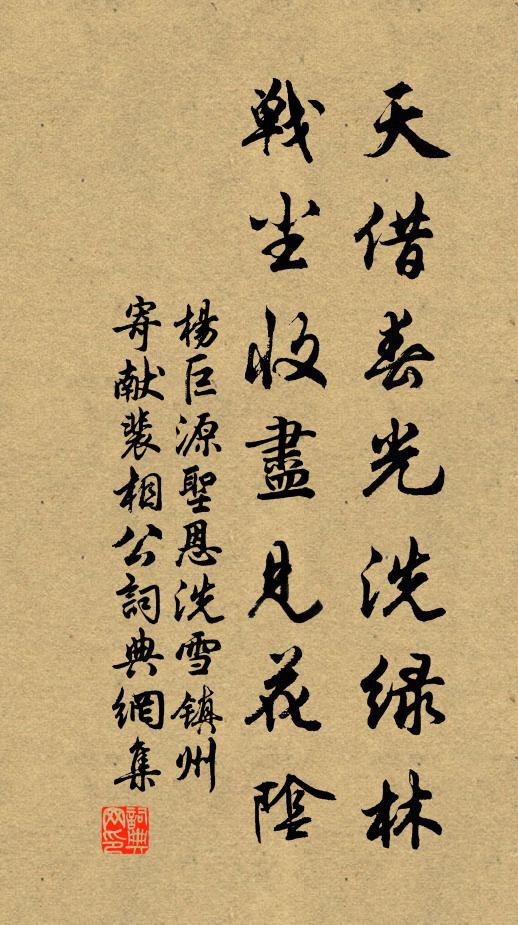 天借春光洗緑林
戰尘收盡見花陰
楊巨源聖恩洗雪镇州
寄献裴相公詞典網集
詞典网印